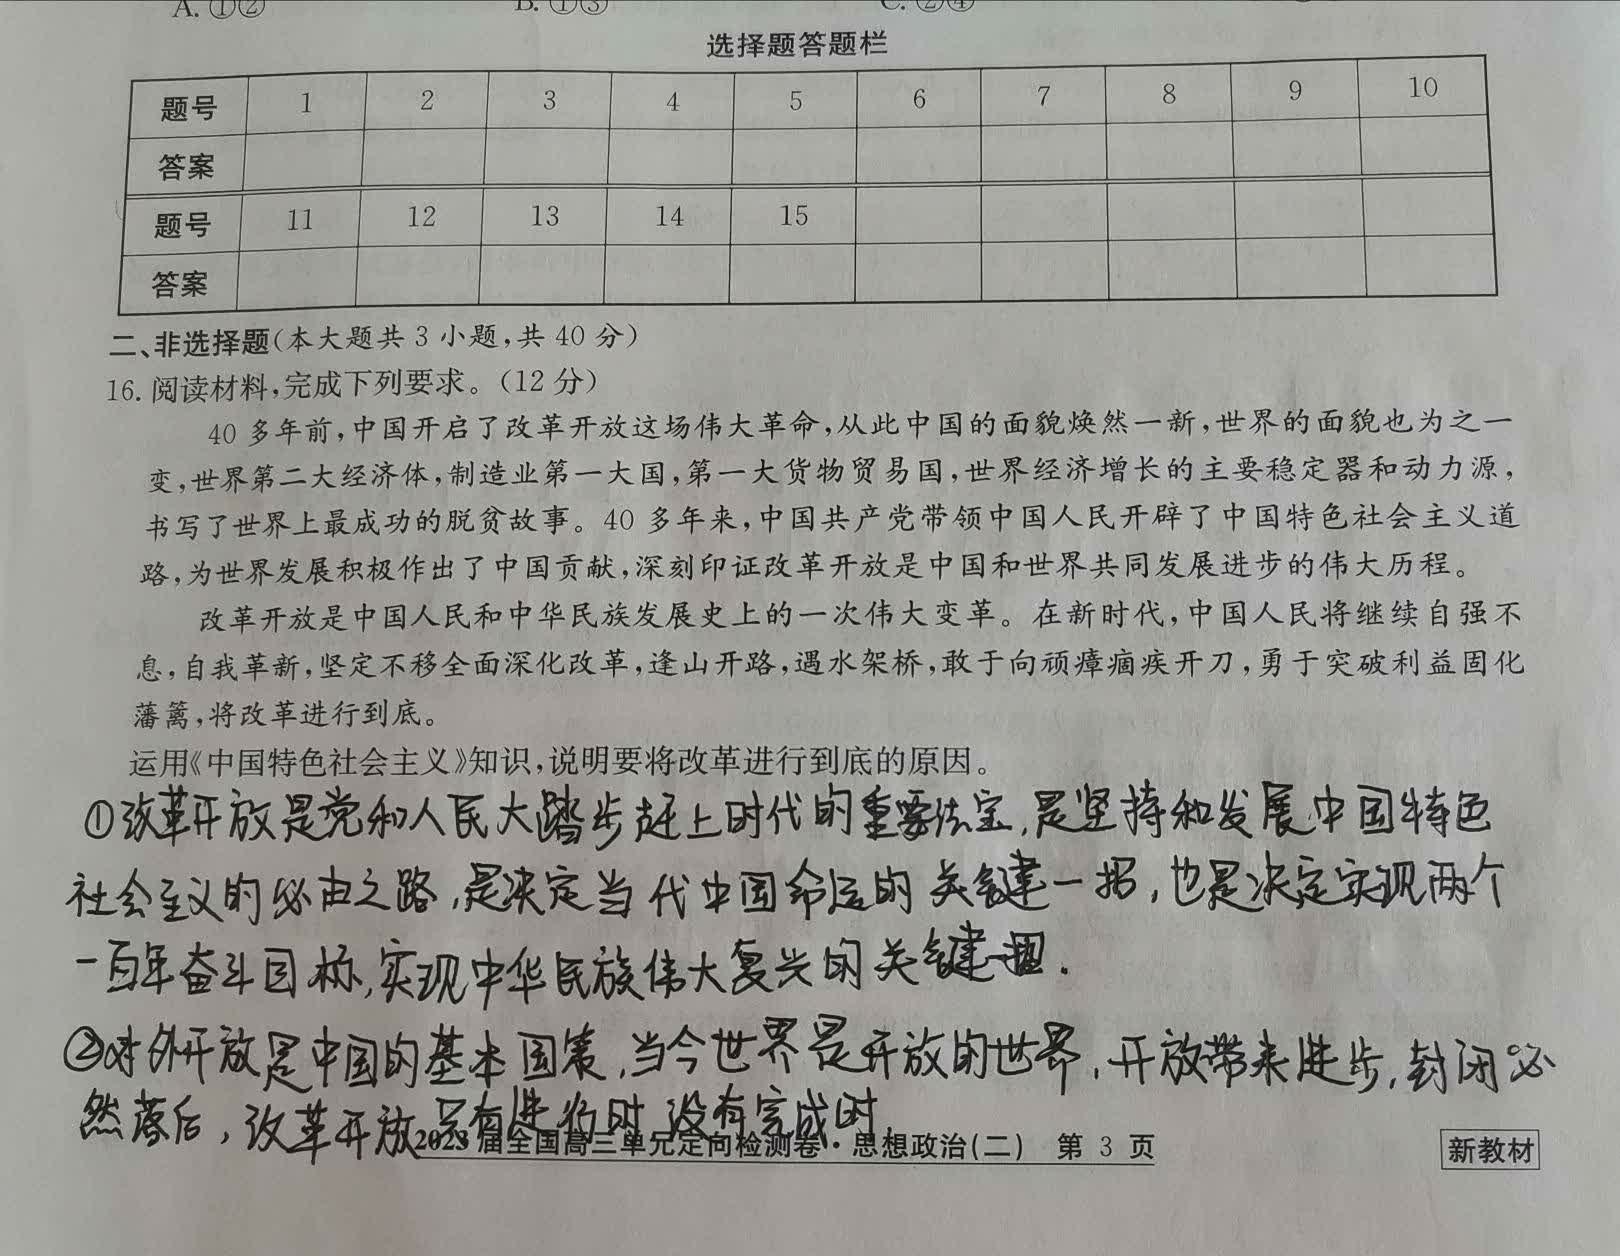 A. ①② B. ①③ C. ②④
选择题答题栏
题号 1 2 3 4 5 6 7 8 9 10
答案
题号 11 12 13 14 15
答案
二、非选择题(本大题共 3 小题,共 40 分)
16. 阅读材料,完成下列要求。(12 分)
40 多年前,中国开启了改革开放这场伟大革命,从此中国的面貌焕然一新,世界的面貌也为之一
变,世界第二大经济体,制造业第一大国,第一大货物贸易国,世界经济增长的主要稳定器和动力源,
书写了世界上最成功的脱贫故事。40 多年来,中国共产党带领中国人民开辟了中国特色社会主义道
路,为世界发展积极作出了中国贡献,深刻印证改革开放是中国和世界共同发展进步的伟大历程。
改革开放是中国人民和中华民族发展史上的一次伟大变革。在新时代,中国人民将继续自强不
息,自我革新,坚定不移全面深化改革,逢山开路,遇水架桥,敢于向顽瘴痼疾开刀,勇于突破利益固化
藩篱,将改革进行到底。
运用《中国特色社会主义》知识,说明要将改革进行到底的原因。
①改革开放是党和人民大踏步赶上时代的重要法宝,是坚持和发展中国特色
社会主义的必由之路,是决定当代中国命运的关键一招,也是决定实现两个
一百年奋斗目标,实现中华民族伟大复兴的关键一招.
②对外开放是中国的基本国策,当今世界是开放的世界,开放带来进步,封闭必
然落后,改革开放只有进行时 没有完成时.
2023 届全国高三单元定向检测卷·思想政治(二) 第 3 页 新教材